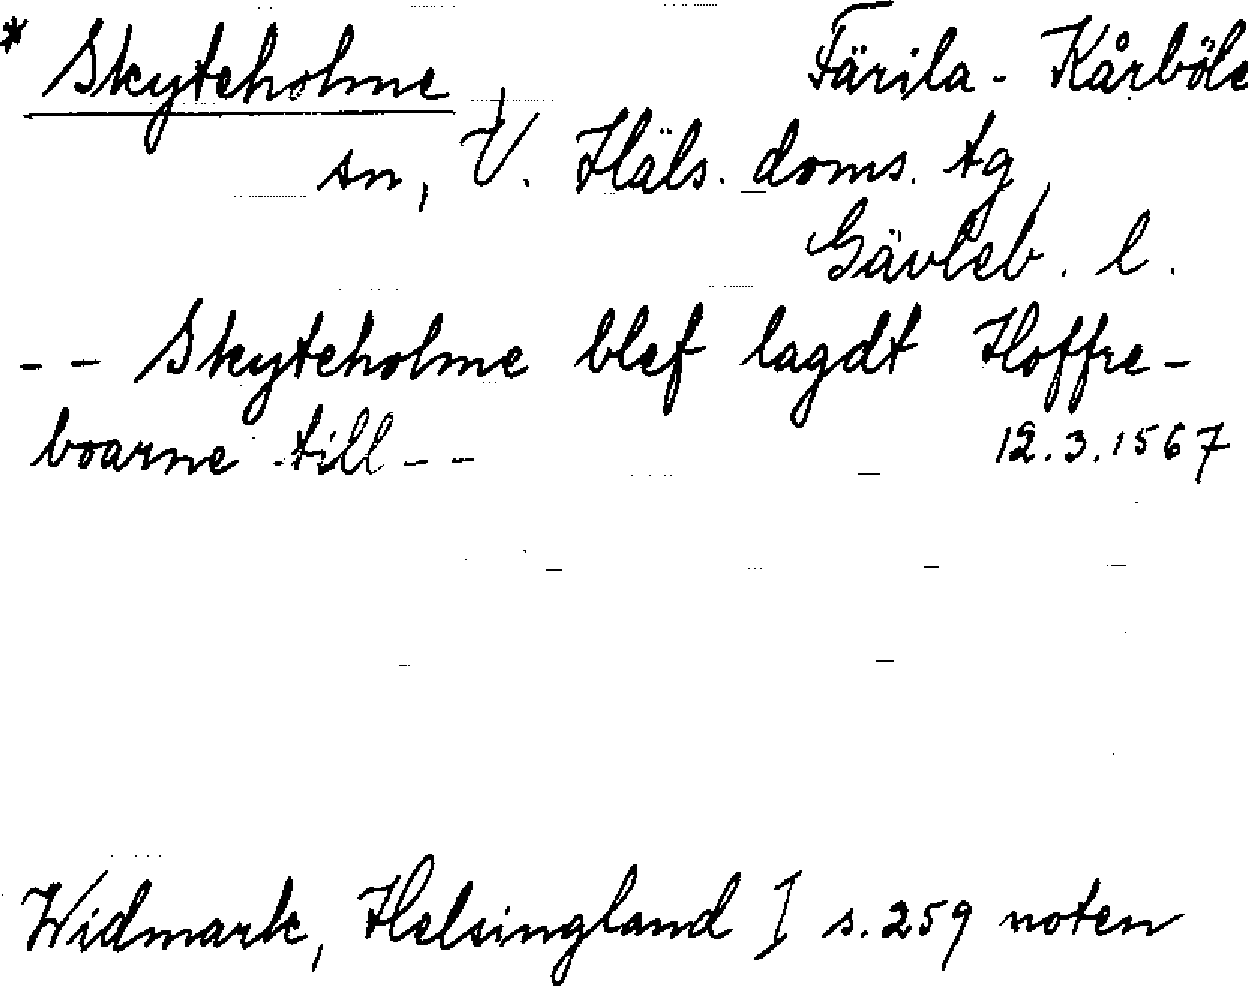 * Skyteholme, Färila-Kårböle
sn, V. Häls. doms. tg,
Gävleb. l.
-- Skyteholme blef lagdt Hoffre-
boarne till -- 12.3.1567
Widmark, Helsingland I s. 259 noten